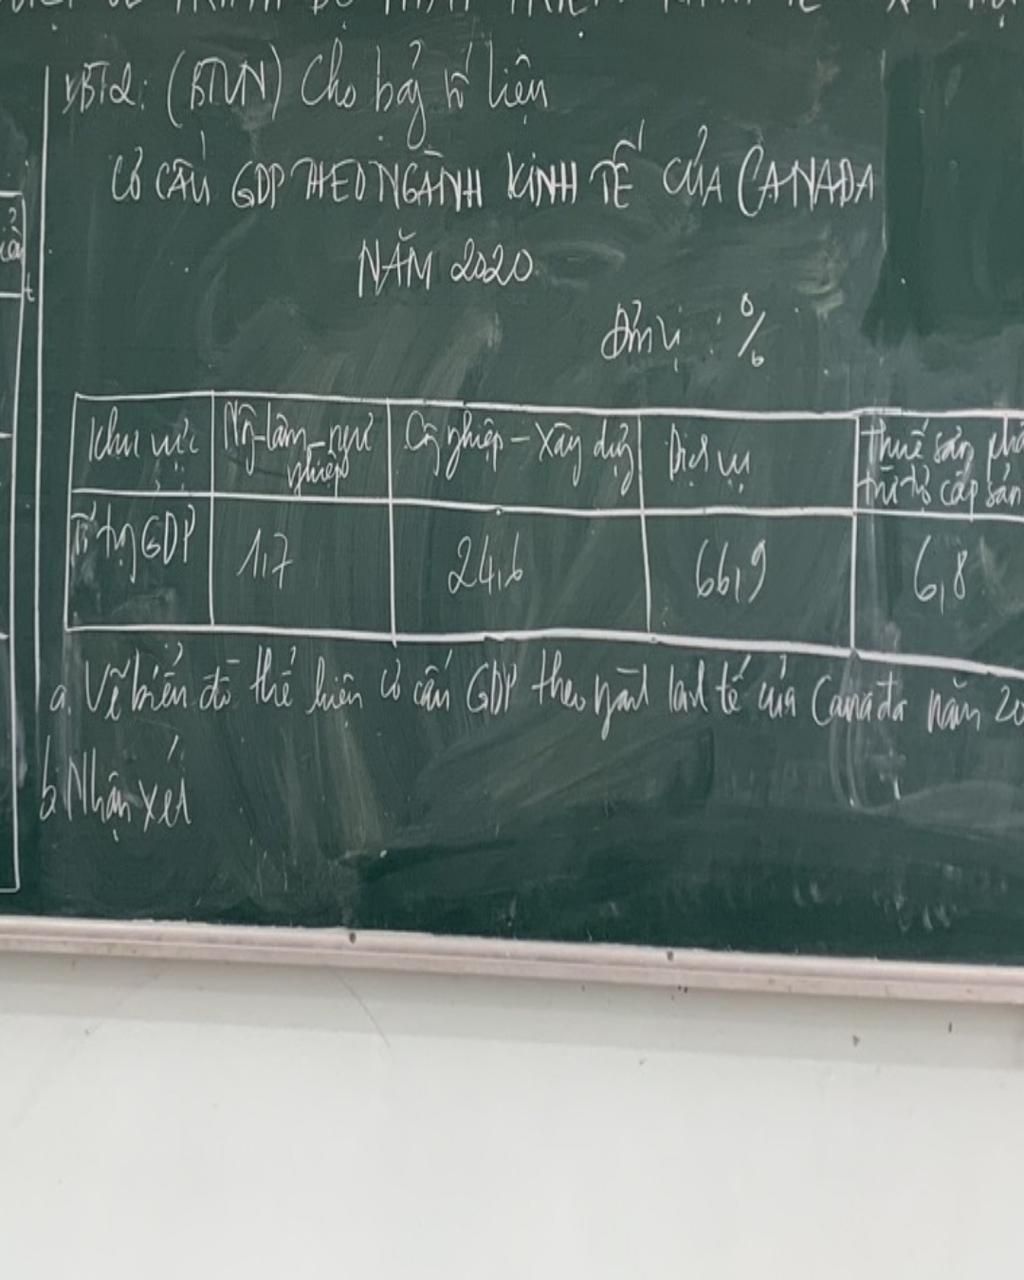 BT2: (BTVN) Cho bảng số liệu
CƠ CẤU GDP THEO NGÀNH KINH TẾ CỦA CANADA
NĂM 2020
Đơn vị : %
Khu vực Nông-lâm-ngư nghiệp Công nghiệp - Xây dựng Dịch vụ Thuế sản phẩm trừ trợ cấp sản
Tỉ trọng GDP 1,7 24,6 66,9 6,8
a. Vẽ biểu đồ thể hiện cơ cấu GDP theo ngành kinh tế của Canada năm 20
b. Nhận xét